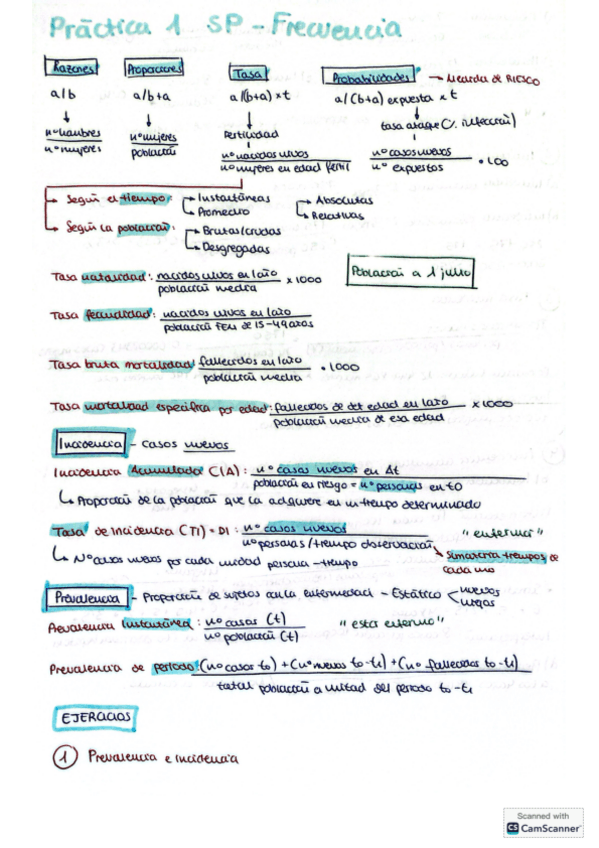 Práctica 1 SP - Frecuencia
Razones Proporciones Tasa Probabilidades → Medida de RIESGO
a/b a/b+a a/(b+a) x t a/(b+a) expuesta x t
nº hombres nº mujeres Fertilidad tasa ataque (% infección)
nº mujeres población nº nacidos vivos nº casos nuevos • 100
nº mujeres en edad fértil nº expuestos
→ Según el tiempo: → Instantáneas → Absolutas
→ Promedio → Relativas
→ Según la población: → Brutas/crudas
→ Desgregadas
Tasa natalidad: nacidos vivos en 1 año x 1000 Población a 1 julio
población media
Tasa fecundidad: nacidos vivos en 1 año
población FEM de 15-49 años
Tasa bruta mortalidad fallecidos en 1 año • 1000
población media
Tasa mortalidad específica por edad: fallecidos de det edad en 1 año x 1000
población media de esa edad
Incidencia - casos nuevos
Incidencia Acumulada (IA): nº casos nuevos en Δt
población en riesgo = nº personas en t0
↳ Proporción de la población que la adquiere en un tiempo determinado
Tasa de Incidencia (TI) = DI: nº casos nuevos "enferma"
nº personas/tiempo observación
↳ Nº casos nuevos por cada unidad persona - tiempo
Sumatoria tiempos de cada uno
Prevalencia - Proporción de sujetos con la enfermedad - Estático < nuevos
viejos
Prevalencia Instantánea: nº casos (t) "está enfermo"
nº población (t)
Prevalencia de periodo (nº casos t0) + (nº nuevos t0 - t1) + (nº fallecidos t0 - t1)
total población a mitad del periodo t0 - t1
EJERCICIOS
1 Prevalencia e incidencia
Scanned with
CS CamScanner